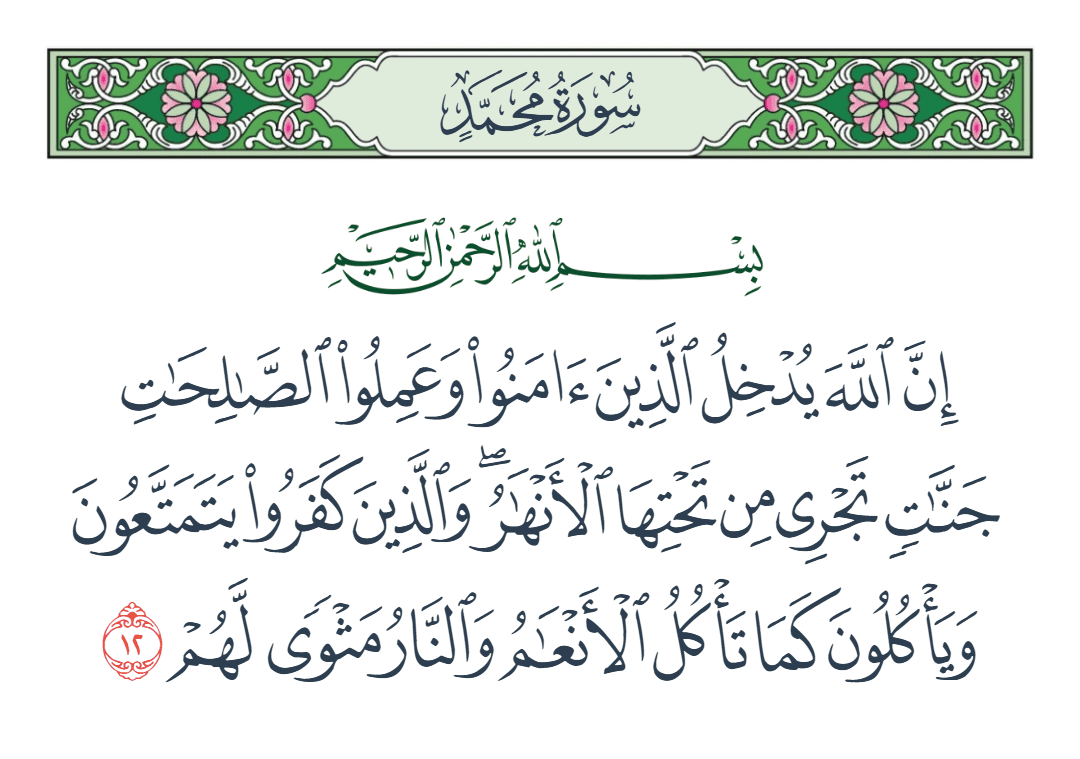 سُورَةُ مُحَمَّدٍ
بِسْمِ ٱللَّهِ ٱلرَّحْمَٰنِ ٱلرَّحِيمِ
إِنَّ ٱللَّهَ يُدْخِلُ ٱلَّذِينَ ءَامَنُوا۟ وَعَمِلُوا۟ ٱلصَّـٰلِحَـٰتِ
جَنَّـٰتٍ تَجْرِى مِن تَحْتِهَا ٱلْأَنْهَـٰرُ ۖ وَٱلَّذِينَ كَفَرُوا۟ يَتَمَتَّعُونَ
وَيَأْكُلُونَ كَمَا تَأْكُلُ ٱلْأَنْعَـٰمُ وَٱلنَّارُ مَثْوًى لَّهُمْ ١٢